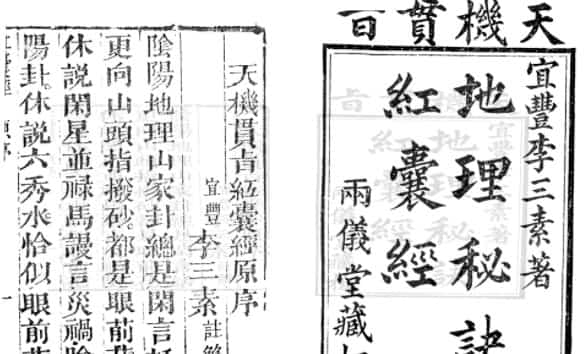 天機貫旨
宜豐李三素著
地理秘訣
紅囊經
兩儀堂藏
天機貫旨紅囊經原序
宜豐李三素註
陰陽地理山家卦總是閑言
更向山頭指撥砂都是眼前
休説閑星並祿馬謾言災禍
陽卦休説六秀水恰似眼前
原序
一